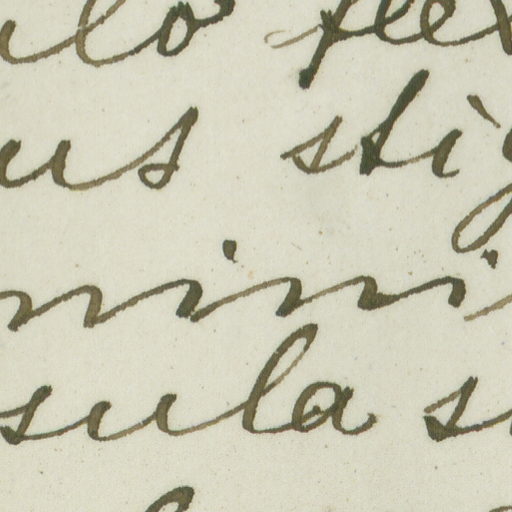 ulo flex
us stig
mini
sula s